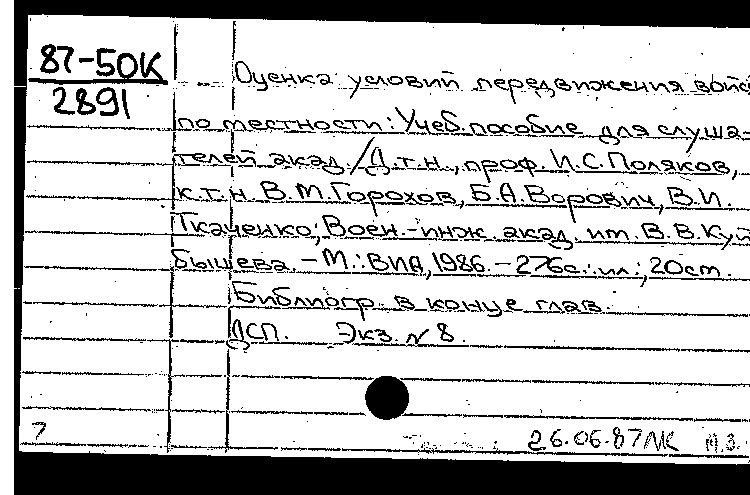 87-50К
2891
Оценка условий передвижения войс
по местности: Учеб. пособие для слуша-
телей акад. / Д.т.н., проф. И.С.Поляков,
к.т.н. В.М.Горохов, Б.А.Ворович, В.И.
Ткаченко; Воен.-инж. акад. им. В.В.Куй
бышева. - М.: ВИА, 1986. - 276с.: ил.; 20см.
Библиогр. в конце глав.
ДСП. Экз. № 8.
7
26.06.87 МК М.З.